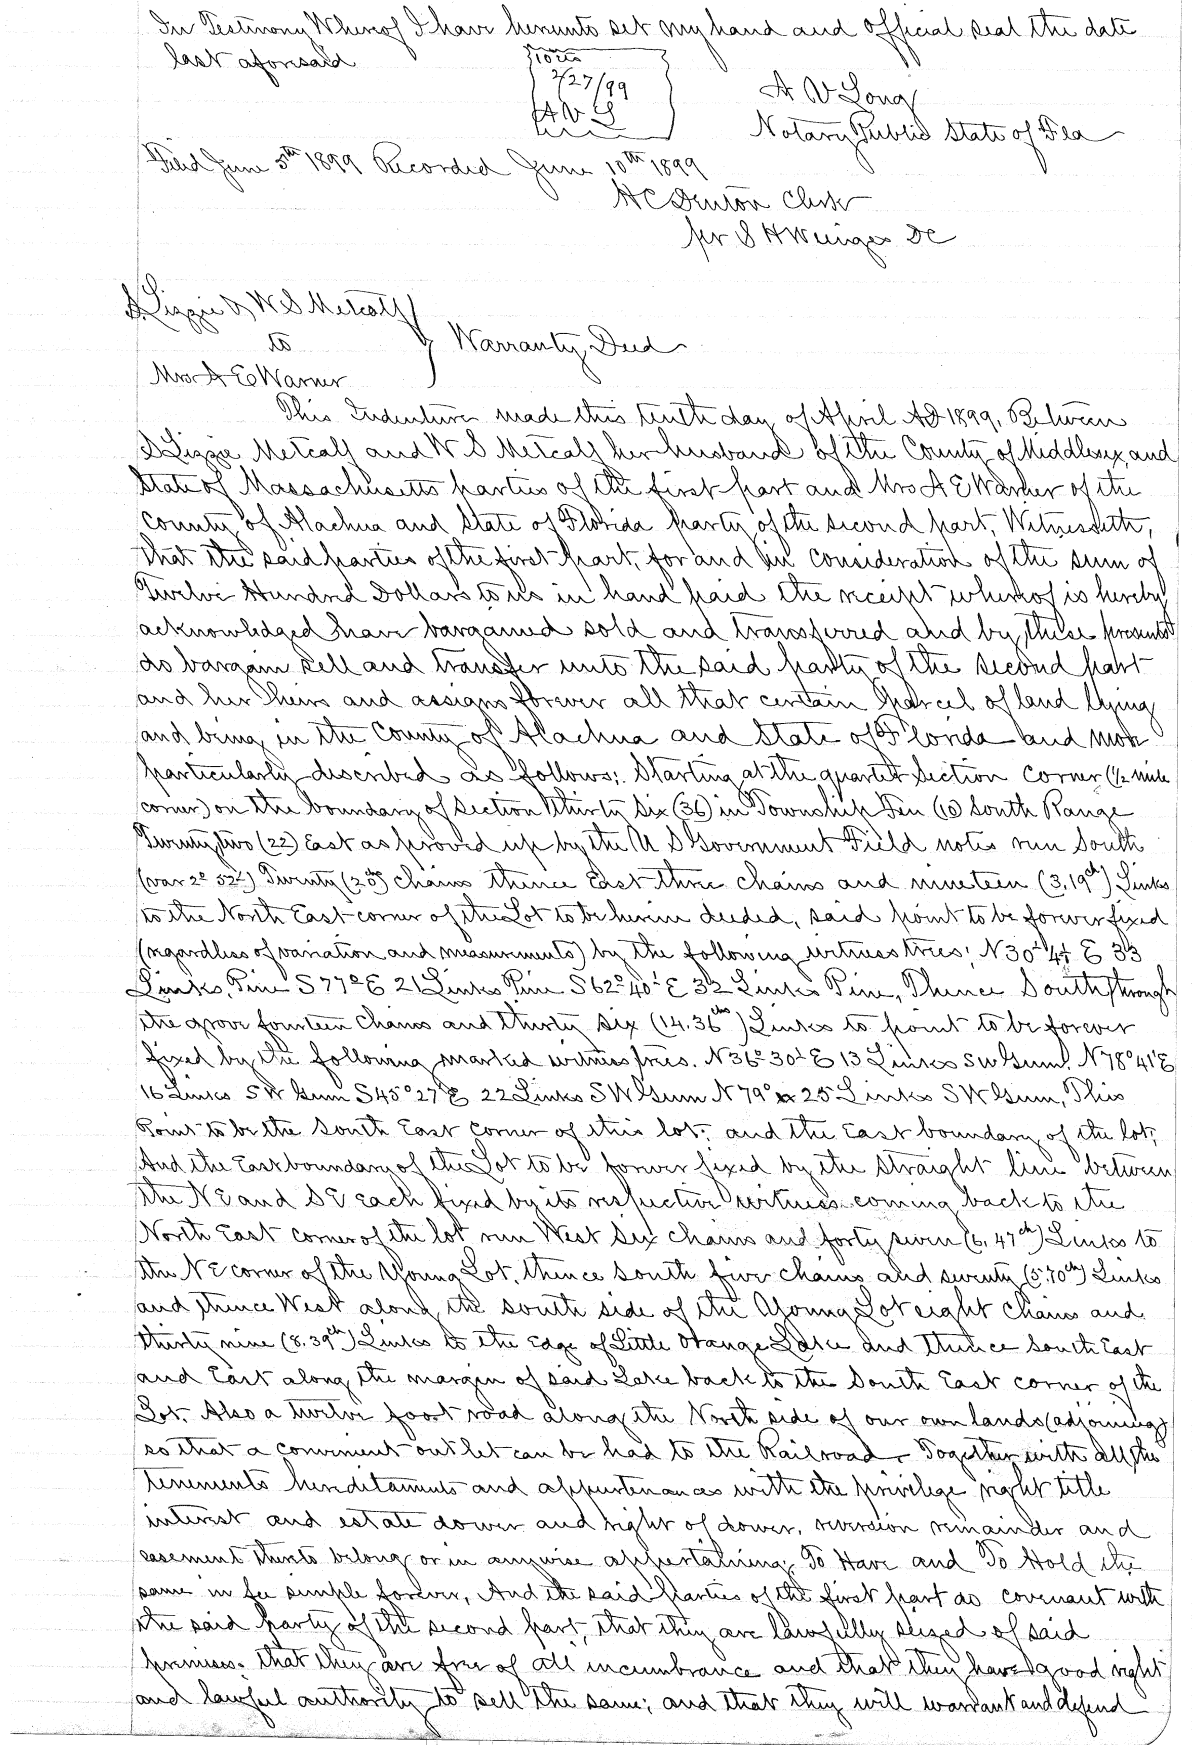 In Testimony Whereof I have hereunto set my hand and official seal the date
last aforesaid
2/27/99
A V L
A V Long
Notary Public State of Fla
Filed June 5th 1899 Recorded June 10th 1899
H C Denton Clerk
per S H Wienges DC
S. Lizzie & W S Metcalf
to
Warranty Deed
Mrs A E Warner
This Indenture made this tenth day of April AD 1899, Between
S Lizzie Metcalf and W S Metcalf her husband of the County of Middlesex and
State of Massachusetts parties of the first part and Mrs A E Warner of the
County of Alachua and State of Florida party of the second part, Witnesseth,
that the said parties of the first part, for and in consideration of the sum of
Twelve Hundred Dollars to us in hand paid the receipt whereof is hereby
acknowledged have bargained sold and transferred and by these presents
do bargain sell and transfer unto the said party of the second part
and her heirs and assigns forever all that certain parcel of land lying
and being in the County of Alachua and State of Florida and more
particularly described as follows: Starting at the quarter section corner (1/2 mile
corner) on the boundary of section thirty six (36) in Township Ten (10) South Range
Twenty two (22) East as proved up by the U S Government Field notes run South
(var 2° 52') Twenty (20) chains thence East three chains and nineteen (3.19ch) Links
to the North East corner of the Lot to be herein deeded, said point to be forever fixed
(regardless of variation and measurements) by the following witness trees; N 30° E 33
Links, Pine S 77° E 21 Links Pine S 62° 40' E 32 Links Pine, Thence South through
the grove fourteen chains and thirty six (14.36chs) Links to point to be forever
fixed by the following marked witness trees. N 36° 30' E 13 Links S W Gum. N 78° 41' E
16 Links S W Gum S 45° 27' E 22 Links S W Gum N 79° 25 Links S W Gum, This
Point to be the South East corner of this lot, and the East boundary of the lot,
And the East boundary of the Lot to be forever fixed by the straight line between
the N E and S E each fixed by its respective witness coming back to the
North East corner of the lot run West Six chains and forty seven (6.47ch) Links to
the N E corner of the Young Lot, thence South five chains and seventy (5.70ch) Links
and thence West along the South side of the Young Lot eight chains and
thirty nine (8.39ch) Links to the edge of Little Orange Lake and thence South East
and East along the margin of said Lake back to the South East corner of the
Lot. Also a twelve foot road along the North side of our own lands (adjoining)
so that a convenient outlet can be had to the Railroad. Together with all the
tenements hereditaments and appurtenances with the privilege right title
interest and estate dower and right of dower, reversion remainder and
easement thereto belong or in anywise appertaining, To Have and To Hold the
same in fee simple forever, And the said parties of the first part do covenant with
the said party of the second part, that they are lawfully seized of said
premises, that they are free of all incumbrance and that they have good right
and lawful authority to sell the same; and that they will warrant and defend